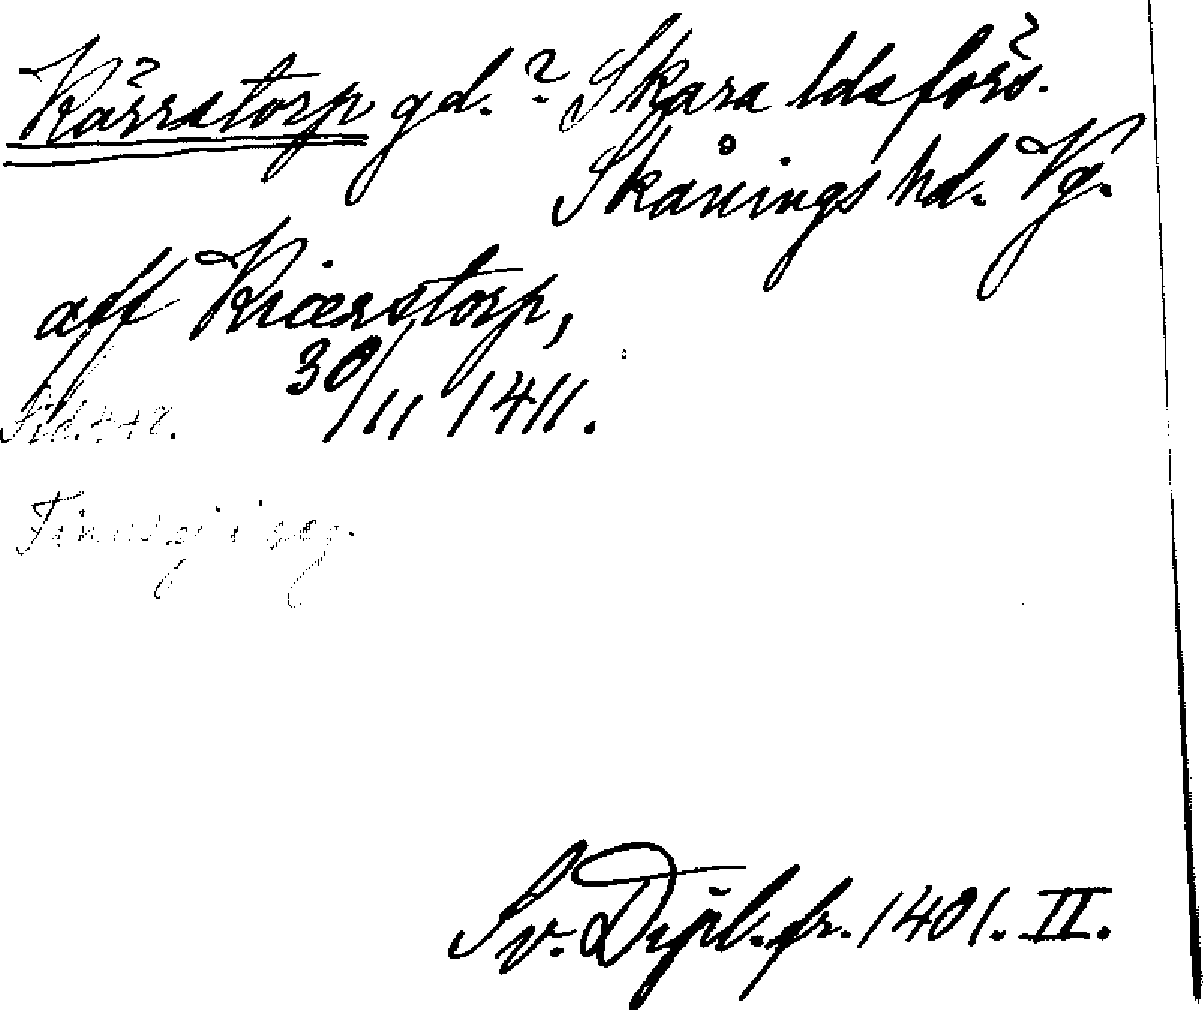 Kärrstorp gd.? Skara ldsförs.
Skånings hd. Vg.
aff Kiærstorp,
30/11 1411.
Sid. 442.
Finns ej i reg.
Sv. Dipl. fr. 1401. II.